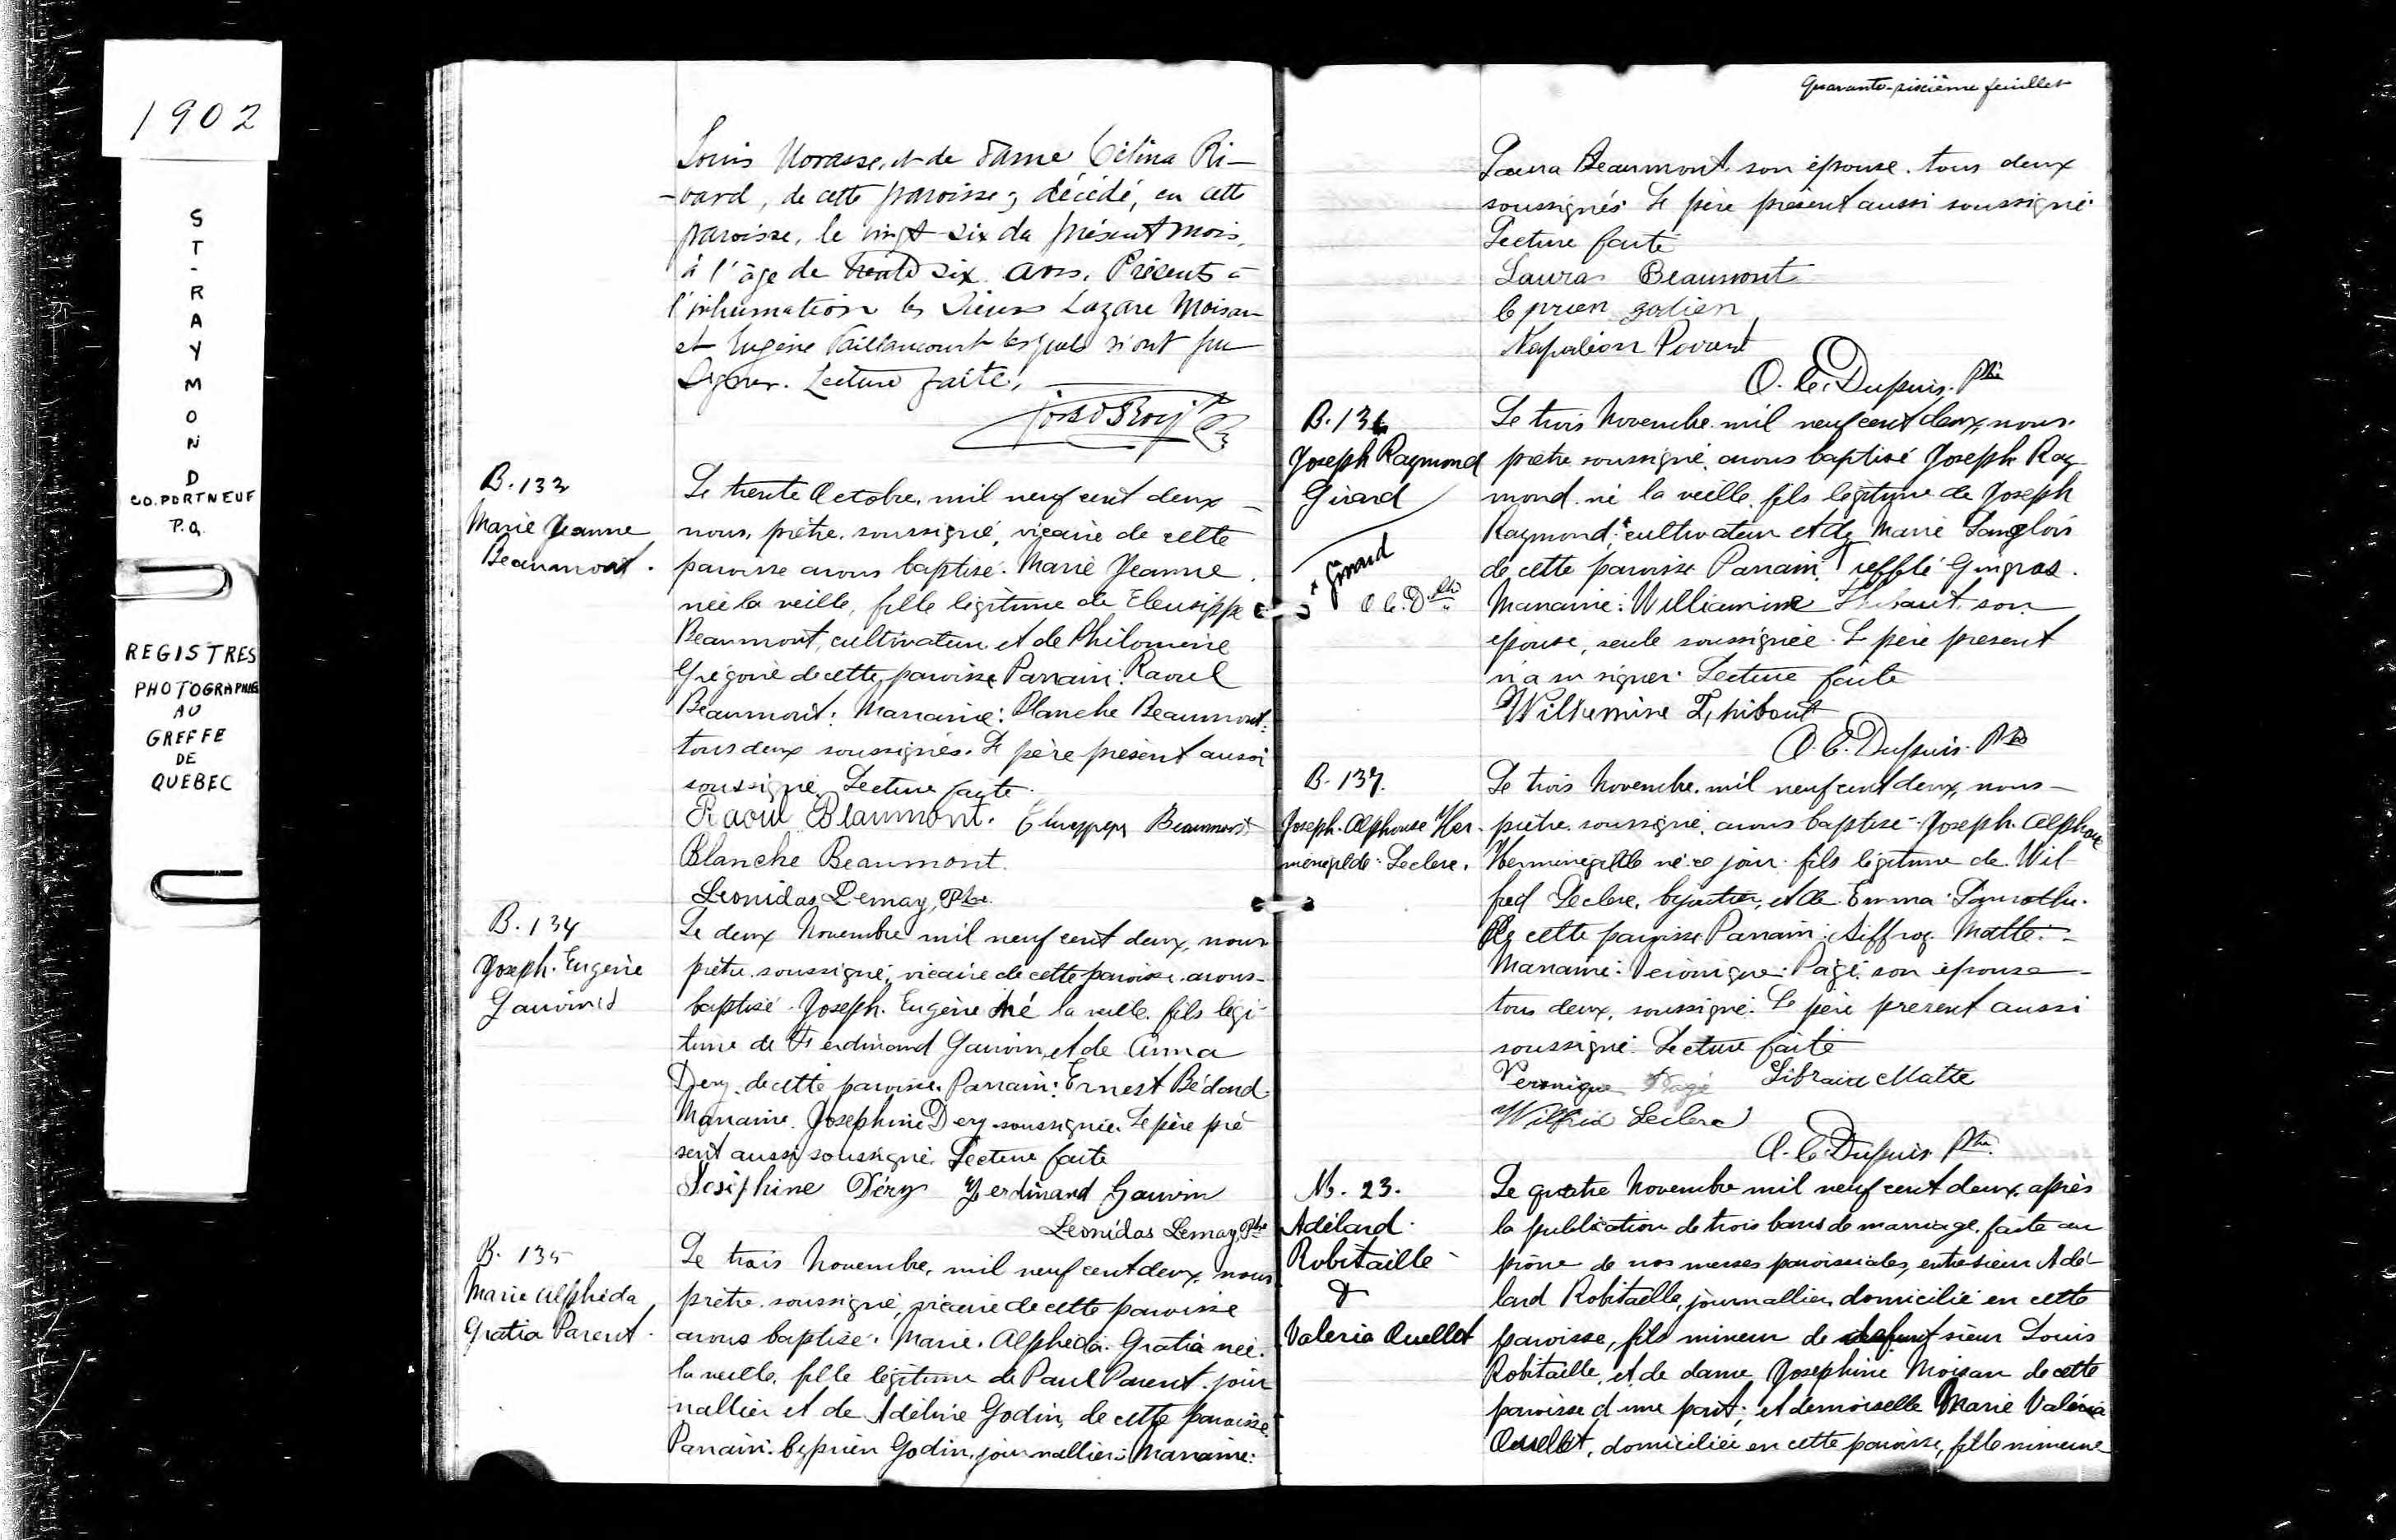 1902
ST-RAYMOND
CO. PORTNEUF
P.Q.
REGISTRES
PHOTOGRAPHIÉS
AU
GREFFE
DE
QUEBEC
Louis Morasse, et de dame Célina Ri-
-vard, de cette paroisse, décédé, en cette
paroisse, le vingt-six du présent mois,
à l'âge de trente six ans. Présents à
l'inhumation les Sieurs Lazare Moisan
et Eugène Vaillancourt lesquels n'ont pu
Signer. Lecture faite.
B. 133
Marie Jeanne
Beaumont.
Le trente Octobre, mil neuf cent deux
nous, prêtre, soussigné, vicaire de cette
paroisse avons baptisé. Marie Jeanne.
née la veille, fille légitime de Eleusippe
Beaumont, cultivateur et de Philomène
Grégoire de cette paroisse Parrain: Raoul
Beaumont. Marraine: Blanche Beaumont.
tous deux soussignés. Le père présent aussi
soussigné. Lecture faite.
Raoul Beaumont. Beaumont
Blanche Beaumont.
Leonidas Lemay, Ptre.
B. 134
Joseph. Eugène
Gauvin
Le deux Novembre mil neuf cent deux, nous
prêtre soussigné, vicaire de cette paroisse avons
baptisé. Joseph. Eugène né la veille. fils légi-
time de Ferdinand Gauvin, et de Anna
Dery. de cette paroisse. Parrain: Ernest Bédard.
Marraine. Josephine Dery soussignée. Le père pré
sent aussi soussigné. Lecture faite
Joséphine Déry Ferdinand Gauvin
Leonidas Lemay, Ptre
B. 135
Marie Alphéda
Gratia Parent.
Le trois Novembre, mil neuf cent deux, nous
prêtre soussigné, vicaire de cette paroisse
avons baptisé. Marie. Alphéda. Gratia née.
la veille. fille légitime de Paul Parent. jour
nallier et de Adéline Godin, de cette paroisse.
Parrain. Cyprien Godin, journallier. Marraine:
Quarante-sixième feuillet
Laura Beaumont, son épouse. tous deux
soussignés. Le père présent aussi soussigné.
Lecture faite
Laura Beaumont
Cyprien godien
Napoléon
O. C. Dupuis. Ptre
B. 136
Joseph Raymond
Girard
+ Girard
O. C. D. Ptre
Le trois Novembre mil neuf cent deux, nous.
prêtre soussigné, avons baptisé Joseph Ray
mond. né la veille. fils légitime de Joseph
Raymond + cultivateur et de Marie Langlois
de cette paroisse Parrain. Trefflé Gingras.
Marraine: Williamine Thibaut son
épouse, seule soussignée. Le père présent
n'a su signer. Lecture faite
Willemine Thibout
O. C. Dupuis. Ptre
B. 137.
Joseph. Alphonse Her-
ménégilde. Leclerc.
Le trois Novembre. mil neuf cent deux, nous -
prêtre soussigné, avons baptisé Joseph. Alphonse
Herménégilde né ce jour. fils légitime de Wil-
fred Leclerc, bijoutier, et de Emma
de cette paroisse Parrain: Siffroy Matte.
Marraine: Véronique Pagé son épouse
tous deux, soussigné. Le père présent aussi
soussigné. Lecture faite
Veronique Pagé Matte
Wilfrid Leclerc
O. C. Dupuis. Ptre.
M. 23.
Adélard
Robitaille
&
Valeria Ouellet
Le quatre Novembre mil neuf cent deux, après
la publication de trois bans de marriage faite au
prône de nos messes paroissiales, entre sieur Adé-
lard Robitaille, journallier, domicilié en cette
paroisse, fils mineur de defunt sieur Louis
Robitaille, et de dame Josephine Moisan de cette
paroisse d'une part; et demoiselle Marie Valéria
Ouellet, domiciliée en cette paroisse, fille mineure